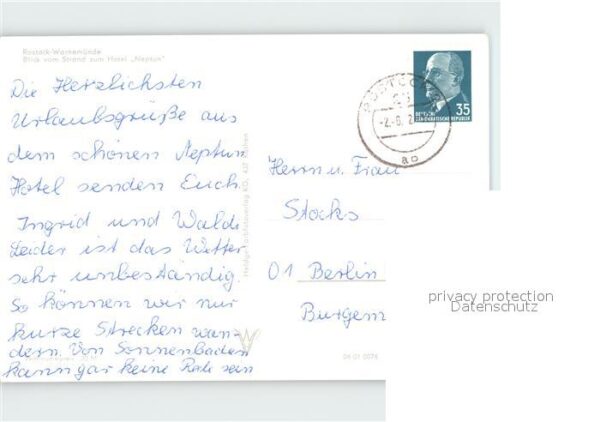 Rostock-Warnemünde
Blick vom Strand zum Hotel „Neptun"
Die Herzlichsten
Urlaubsgrüße aus
dem schönen Neptun
Hotel senden Euch
Ingrid und Waldi
Leider ist das Wetter
sehr unbeständig.
So können wir nur
kurze Strecken wan-
dern. Von Sonnenbaden
kann gar keine Rede sein
35
DEUTSCHE
DEMOKRATISCHE REPUBLIK
ROSTOCK
ao
Herrn u. Frau
Stocks
01 Berlin
Burgem
04 01 0074
privacy protection
Datenschutz